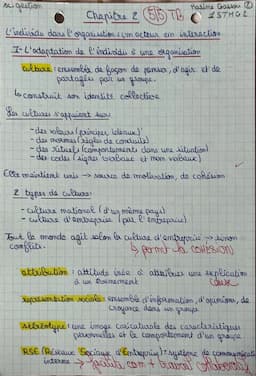 sc gestion
Chapitre 2 5/5 TB
1STMG2
L'individu dans l'organisation : un acteur en interaction
I- L'adaptation de l'individu à une organisation
culture : ensemble de façon de penser, d'agir et de
partagées par un groupe.
↳ construit son identité collective
Les cultures s'appuient sur :
- des valeurs (principes, idéaux)
- des normes (règles de conduite)
- des rituels (comportements dans une situation)
- des codes (signes verbaux et non verbaux)
Elle maintient unis → source de motivation, de cohésion
2 types de culture :
- culture national (d'un même pays)
- culture d'entreprise (par l'entreprise)
Tout le monde agit selon la culture d'entreprise → sinon
conflits.
↳ permet la COHÉSION
attribution : attitude visée à attribuer une explication
à un évènement
cause
représentation sociale : ensemble d'information, d'opinions, de
croyance dans un groupe
stéréotype : une image caricaturale des caractéristiques
personnelles et le comportement d'un groupe
RSE (Réseaux Sociaux d'Entreprise) : système de communication
interne → facilite com + travail collaboratif